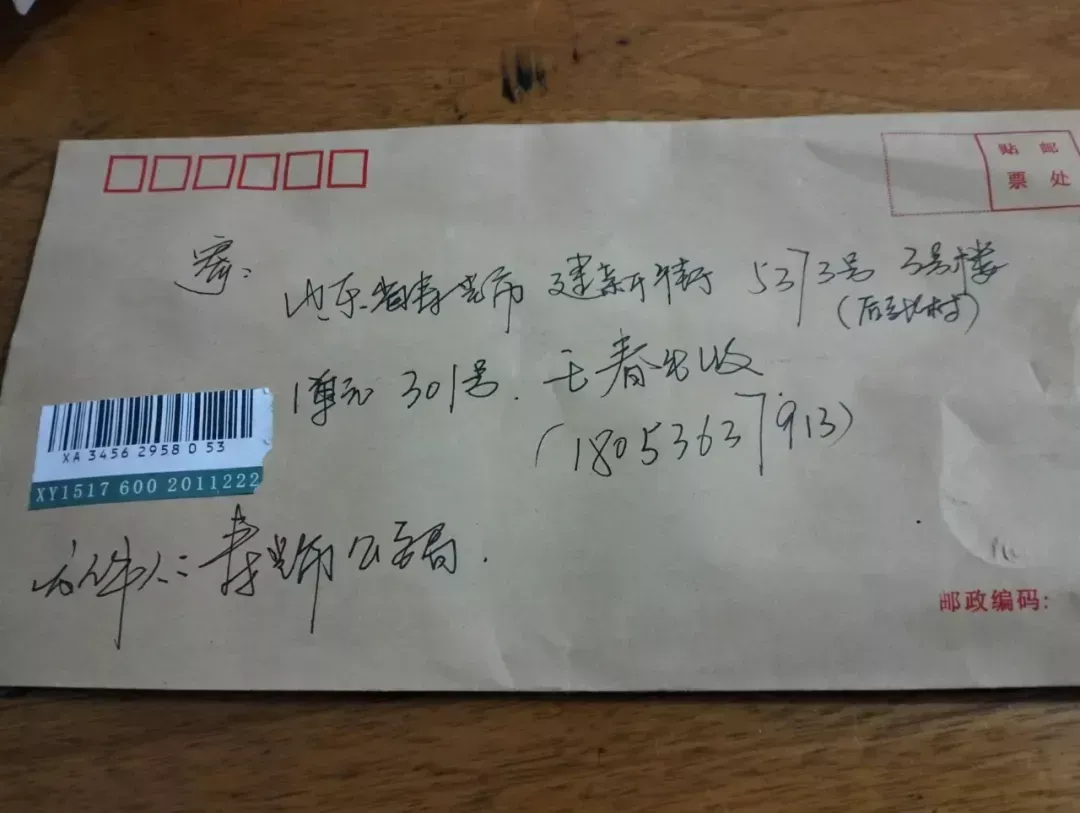 贴 邮
票 处
寄:
山东省寿光市 建新街 5373号 3号楼
(后张村)
1单元 301号. 王春出收
(18053637913)
XA 3456 2958 0 53
XY1517 600 2011222
寿光市公安局.
邮政编码: